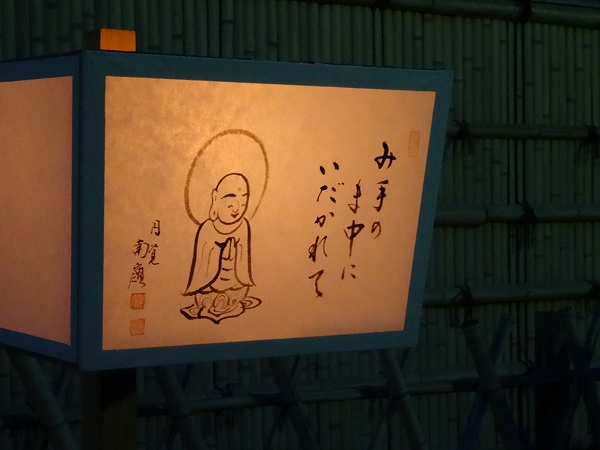 み手の
ま中に
いだかれて
月覚
南應